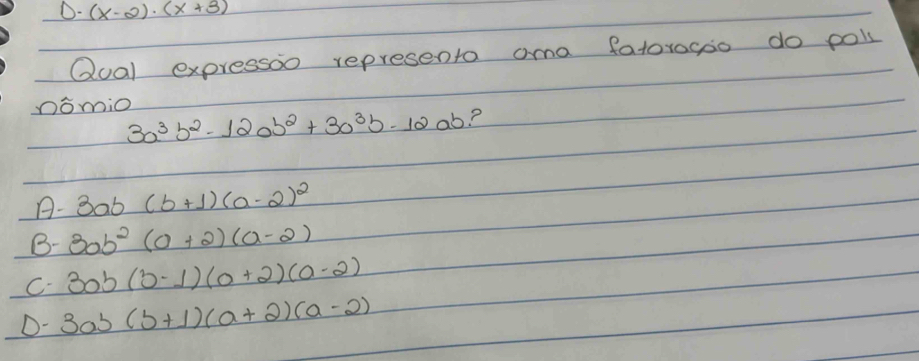 D- (x-2).(x+3)
Qual expressão representa uma fatoração do poli
nômio
3a³b²-12ab²+3a³b-12ab?
A- 3ab (b+1)(a-2)²
B- 3ab² (a+2)(a-2)
C- 3ab (b-1)(a+2)(a-2)
D- 3ab (b+1)(a+2)(a-2)